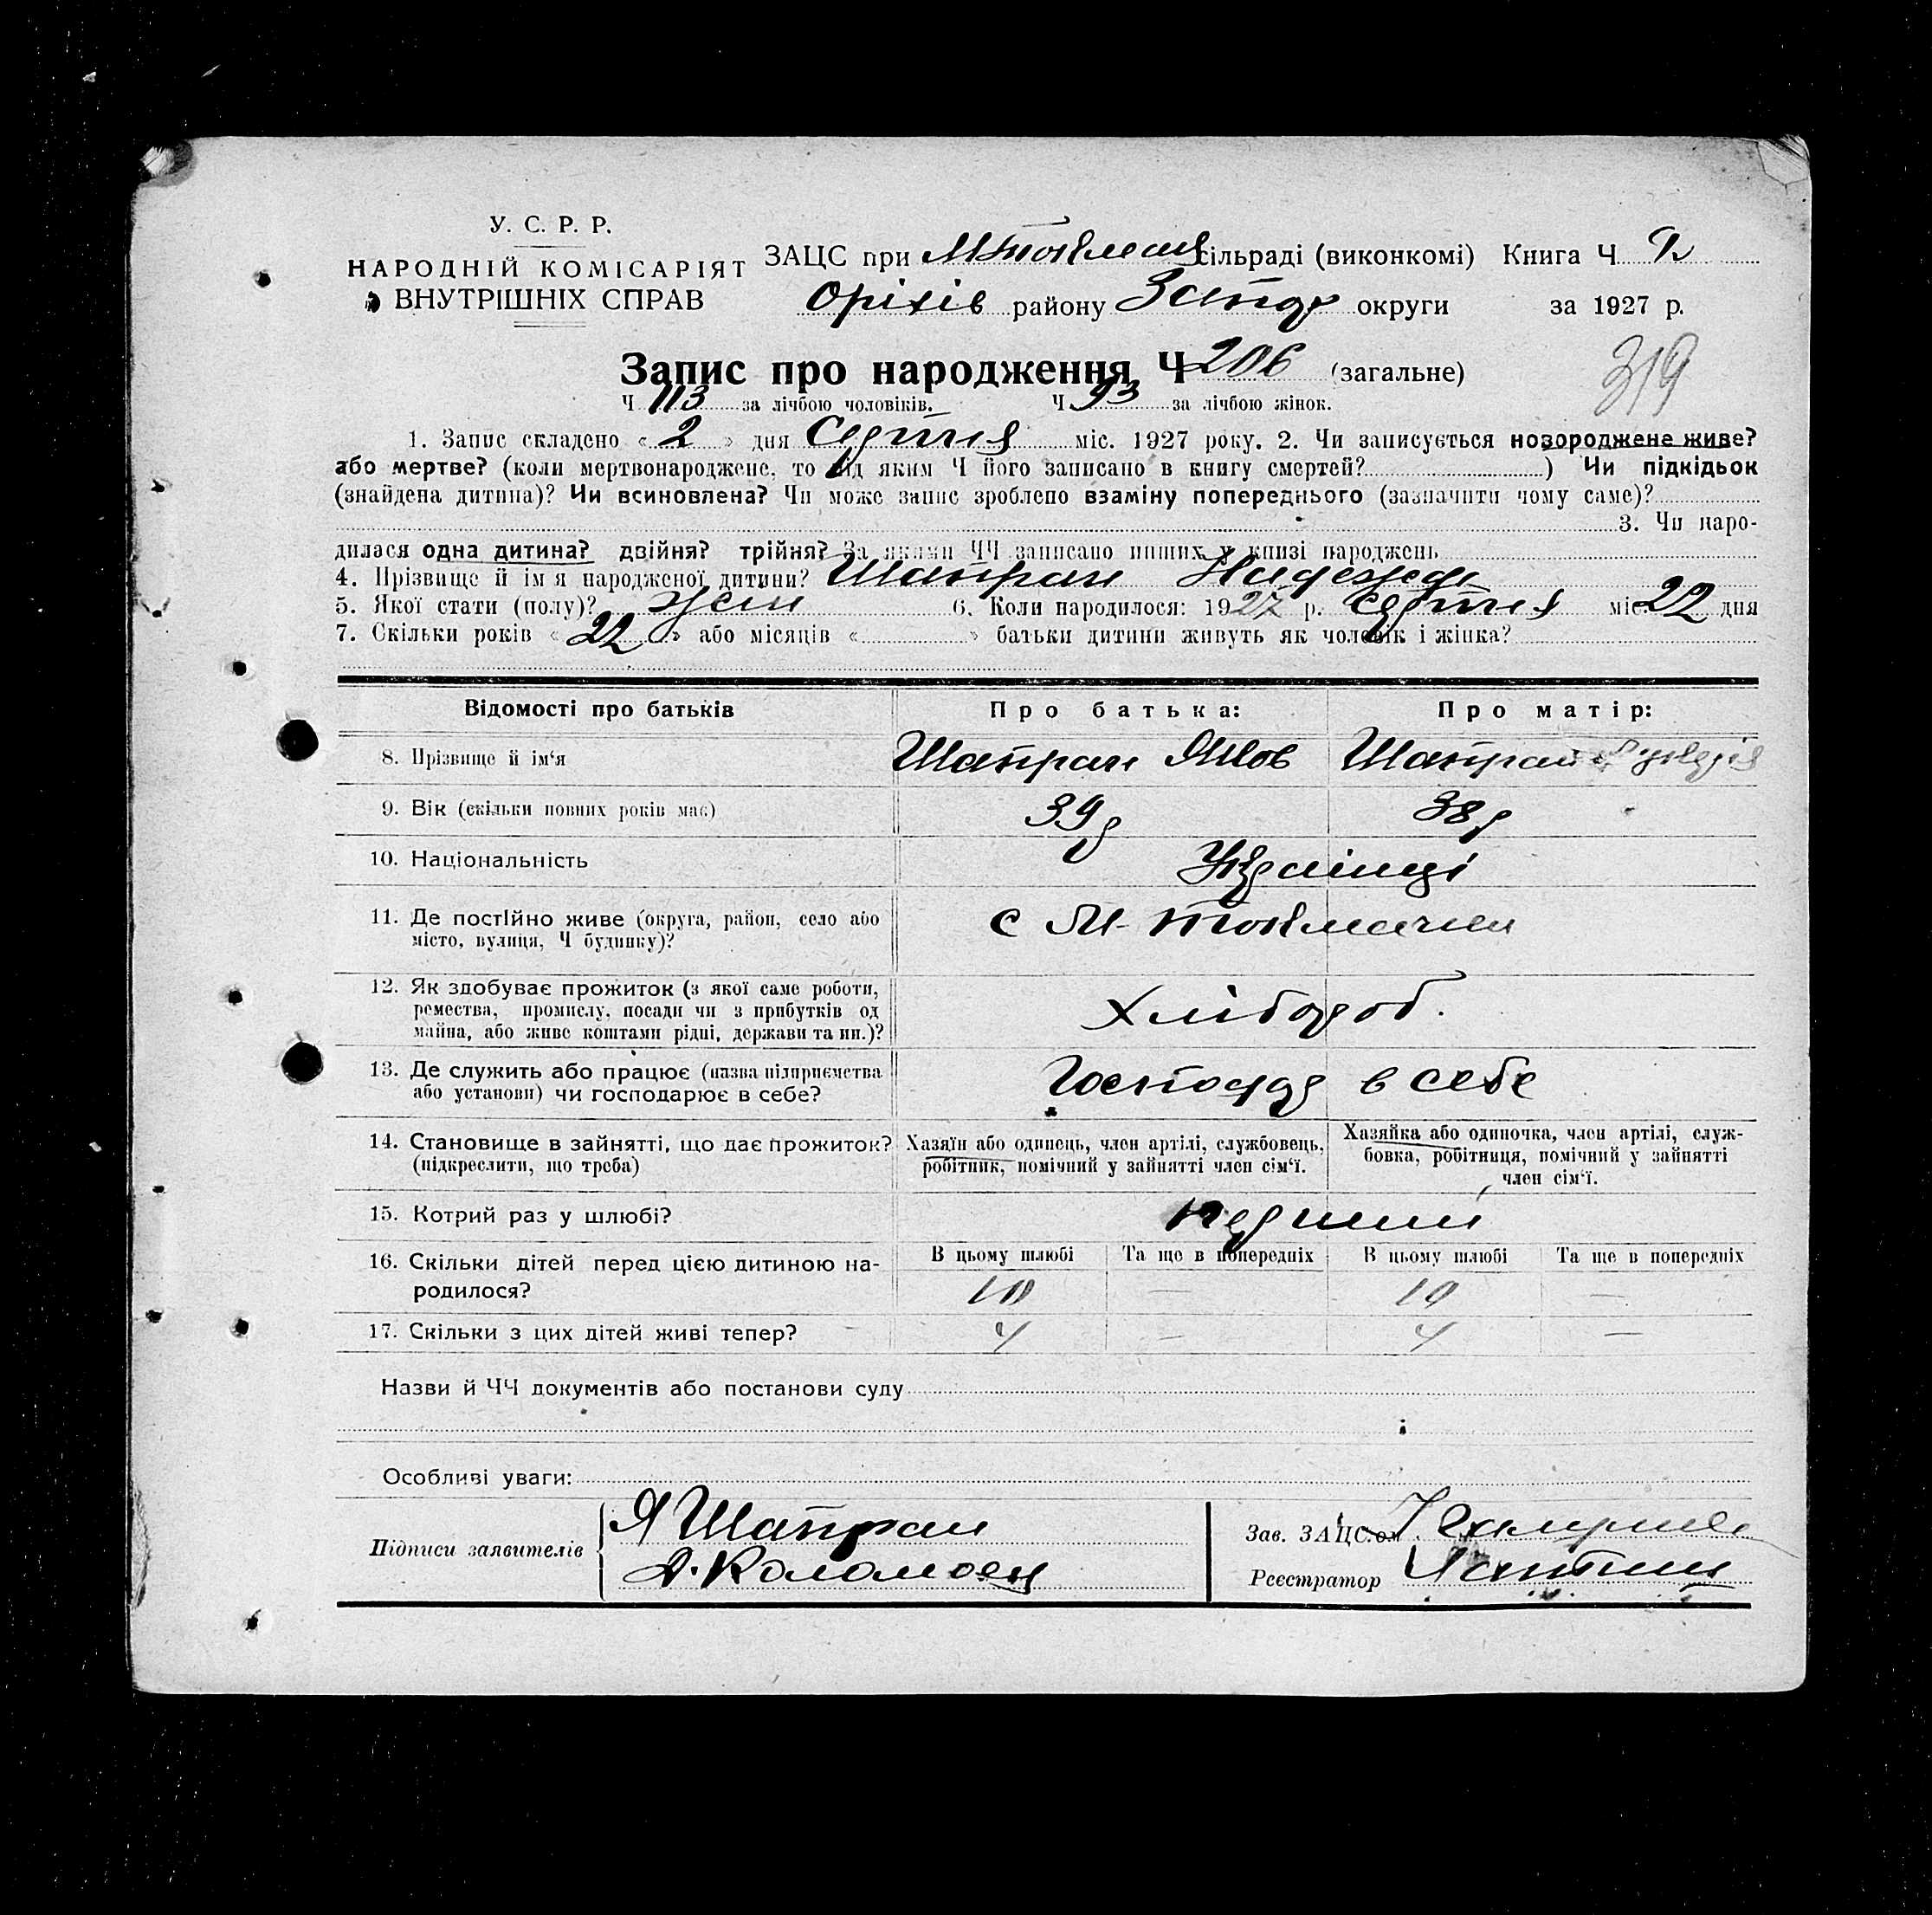 У. С. Р. Р.
НАРОДНІЙ КОМІСАРІЯТ
ВНУТРІШНІХ СПРАВ
ЗАЦС при М Токмац сільраді (виконкомі) Книга Ч
Оріхів району Запор округи за 1927 р.
Запис про народження Ч 206 (загальне)
319
Ч 113 за лічбою чоловіків. Ч 93 за лічбою жінок.
1. Запис складено « 2 » дня Серпня міс. 1927 року. 2. Чи записується новороджене живе?
або мертве? (коли мертвонароджене, то під яким Ч його записано в книгу смертей? ) Чи підкідьок
(знайдена дитина)? Чи всиновлена? Чи може запис зроблено взаміну попереднього (зазначити чому саме)?
3. Чи наро-
дилася одна дитина? двійня? трійня? За якими ЧЧ записано инших у книзі народжень
4. Прізвище й ім я народженої дитини? Шапран Надежда
5. Якої стати (полу)? жен 6. Коли народилося: 1927 р. Серпня міс. 22 дня
7. Скільки років « 22 » або місяців « » батьки дитини живуть як чоловік і жінка?
Відомості про батьків Про батька: Про матір:
8. Прізвище й ім‘я Шапран Яков Шапран
9. Вік (скільки повних років має) 39 р 38 р
10. Національність Українці
11. Де постійно живе (округа, район, село або
місто, вулиця, Ч будинку)? с М-Токмачки
12. Як здобуває прожиток (з якої саме роботи,
ремества, промислу, посади чи з прибутків од
майна, або живе коштами рідні, держави та ин.)? Хлібороб.
13. Де служить або працює (назва підприємства
або установи) чи господарює в себе? Господар в себе
14. Становище в зайнятті, що дає прожиток?
(підкреслити, що треба)
Хазяїн або одинець, член артілі, службовець,
робітник, помічний у зайнятті член сім‘ї.
Хазяйка або одиночка, член артілі, служ-
бовка, робітниця, помічний у зайнятті
член сім‘ї.
15. Котрий раз у шлюбі? перший
16. Скільки дітей перед цією дитиною на-
родилося?
В цьому шлюбі Та ще в попередніх В цьому шлюбі Та ще в попередніх
10 — 10 —
17. Скільки з цих дітей живі тепер? 4 — 4 —
Назви й ЧЧ документів або постанови суду
Особливі уваги:
Підписи заявителів
Я Шапран
А. Коломоец
Зав. ЗАЦС.ом
Реєстратор